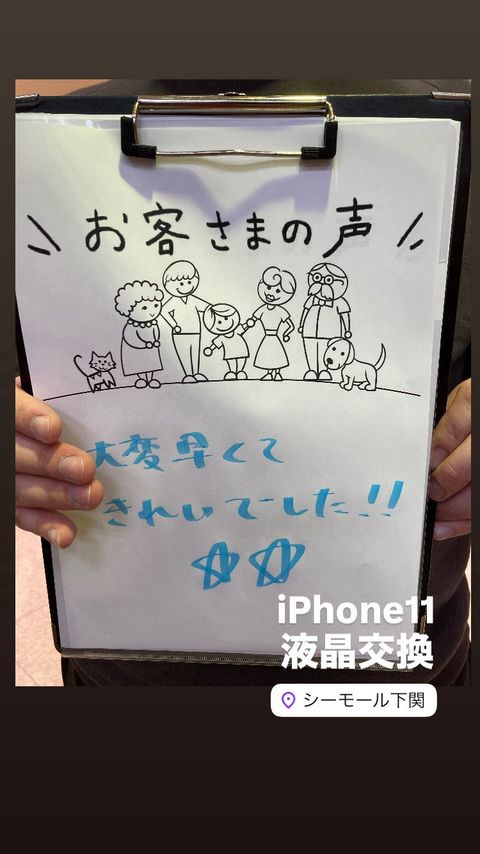 \ お客さまの声 //
大変早くて
きれいでした!!
☆☆
iPhone11
液晶交換
シーモール下関